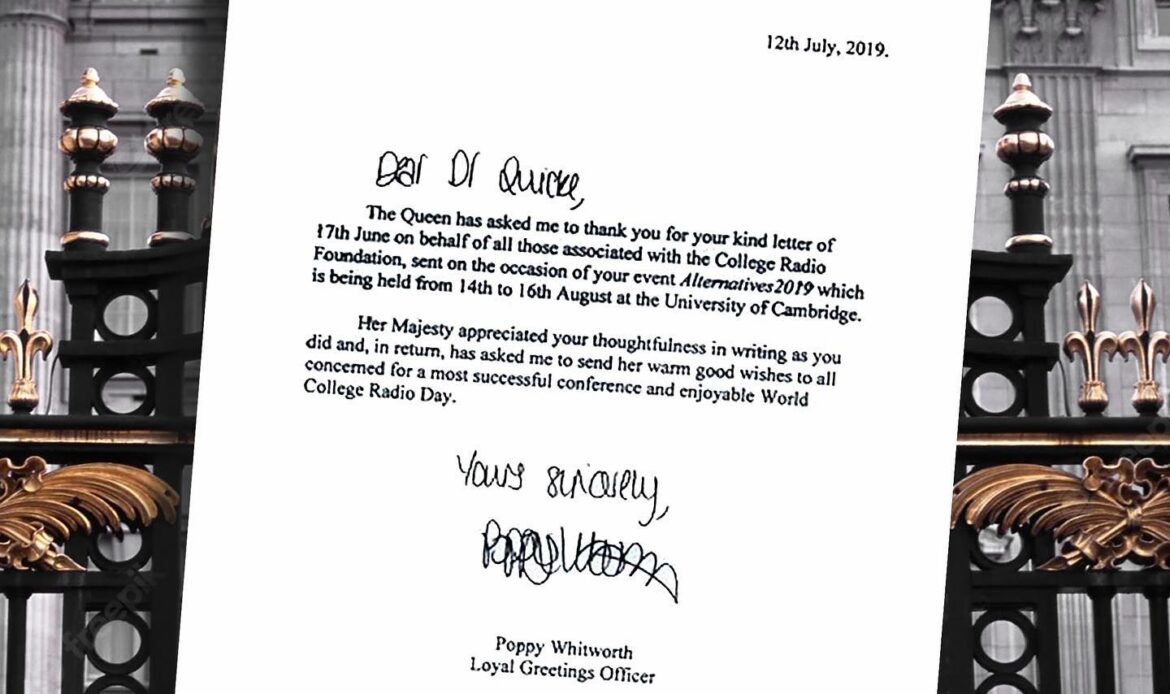 12th July, 2019.
Dear Dr Quicke,
The Queen has asked me to thank you for your kind letter of
17th June on behalf of all those associated with the College Radio
Foundation, sent on the occasion of your event Alternatives2019 which
is being held from 14th to 16th August at the University of Cambridge.
Her Majesty appreciated your thoughtfulness in writing as you
did and, in return, has asked me to send her warm good wishes to all
concerned for a most successful conference and enjoyable World
College Radio Day.
Yours sincerely,
Poppy Whitworth
Loyal Greetings Officer
freepik